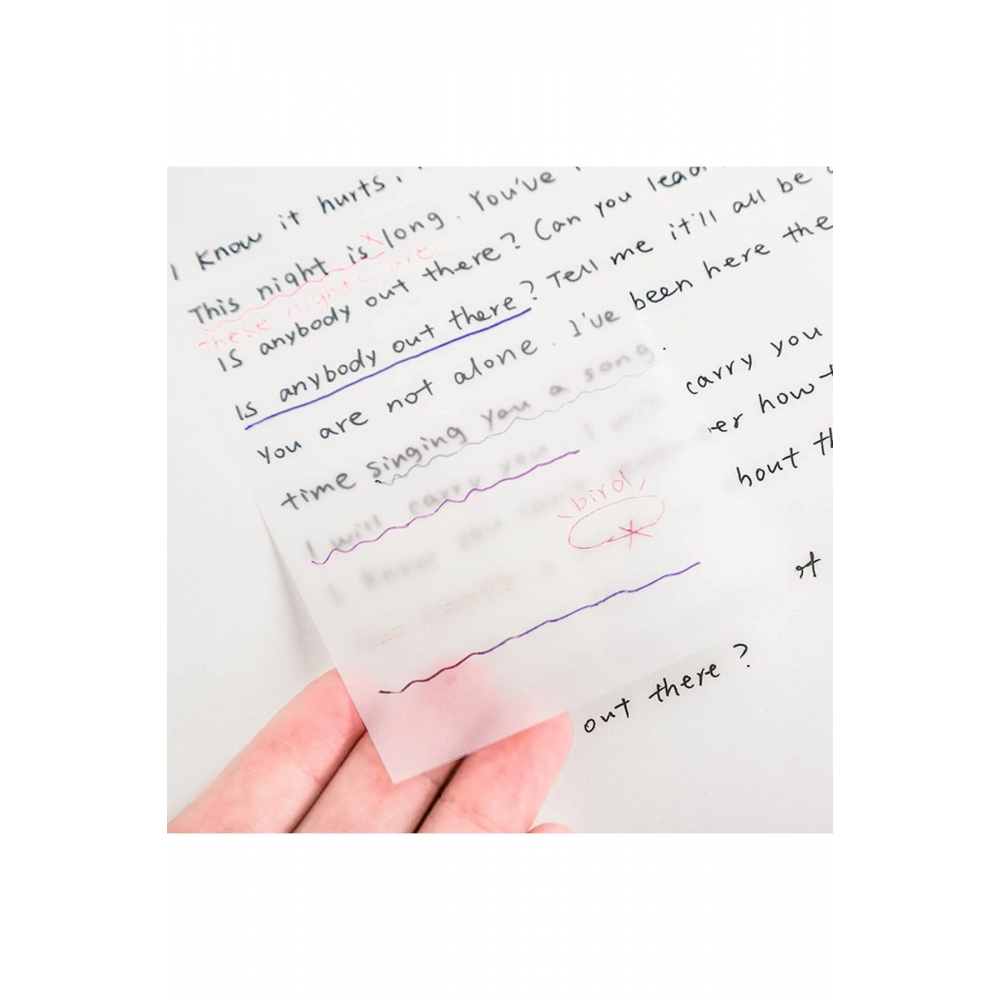 I know it hurts,
This night is long. You've
these nights are
Is anybody out there? Can you lead
Is anybody out there? Tell me it'll all be
You are not alone. I've been here the
time singing you a song.
I will carry you I carry you
er how
bird
I know you bout
out there?